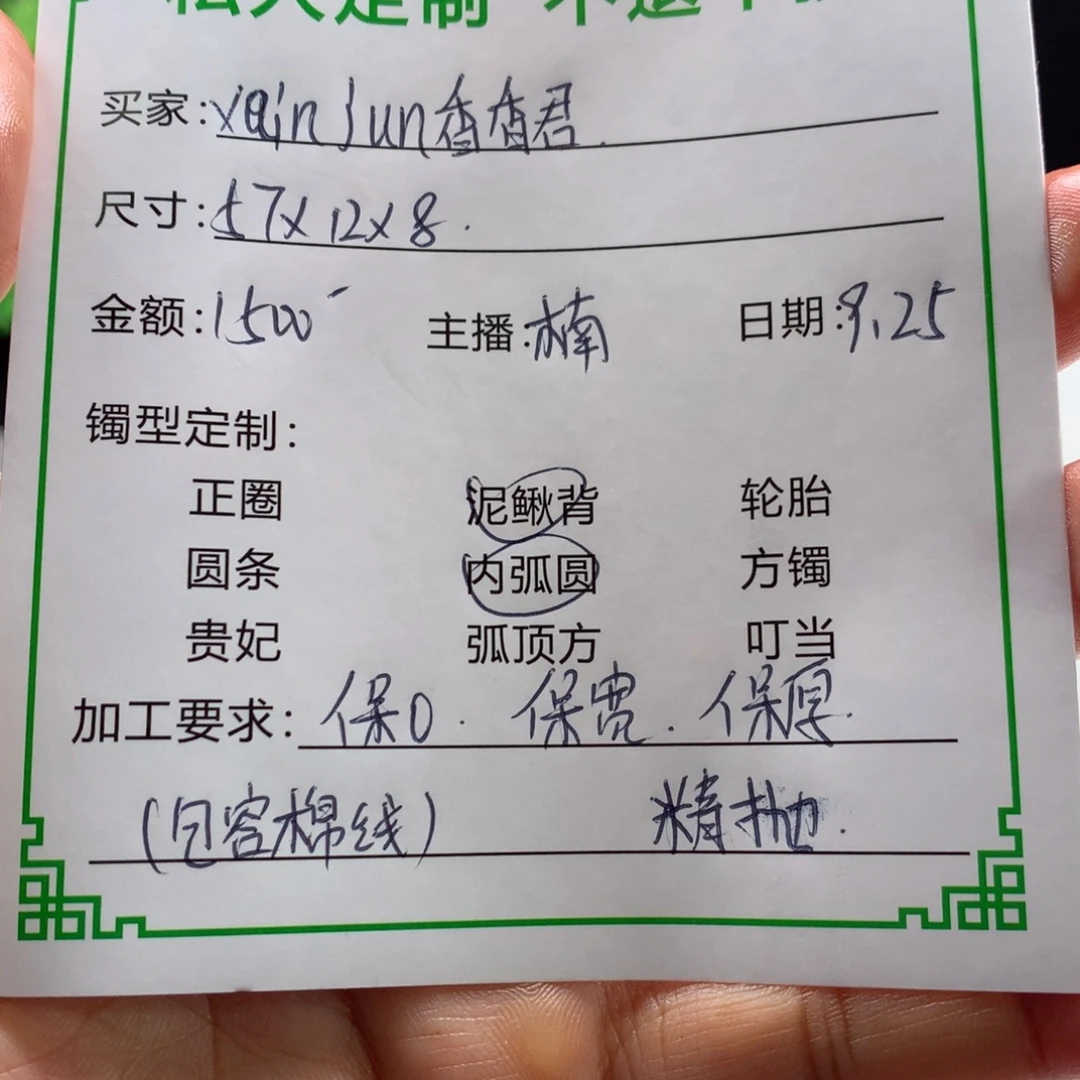 私人定制 不退不换
买家:xqinjun香香君.
尺寸:57x12x8.
金额:1500 主播:楠 日期:9.25
镯型定制:
正圈 泥鳅背 轮胎
圆条 内弧圆 方镯
贵妃 弧顶方 叮当
加工要求:保0. 保宽. 保厚.
(包容棉线) 精抛.